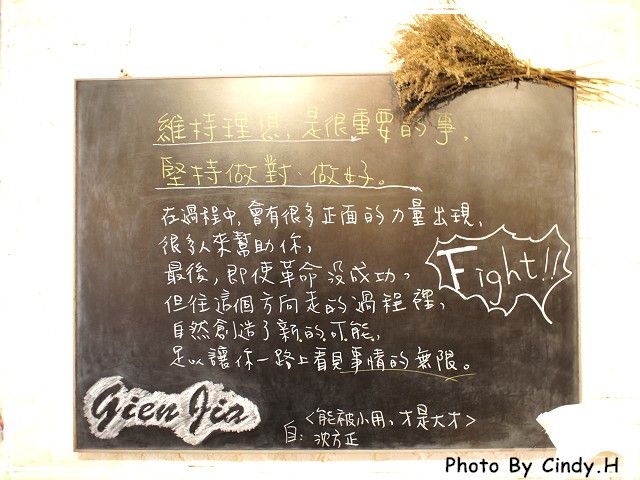 維持理想,是很重要的事,
堅持做對、做好。
在過程中,會有很多正面的力量出現,
很多人來幫助你,
最後,即使革命沒成功,
但往這個方向走的過程裡,
自然創造了新的可能,
足以讓你一路上看見事情的無限。
Fight!!
Gien Jia
<能被小用,才是大才>
自:沈方正
Photo By Cindy.H